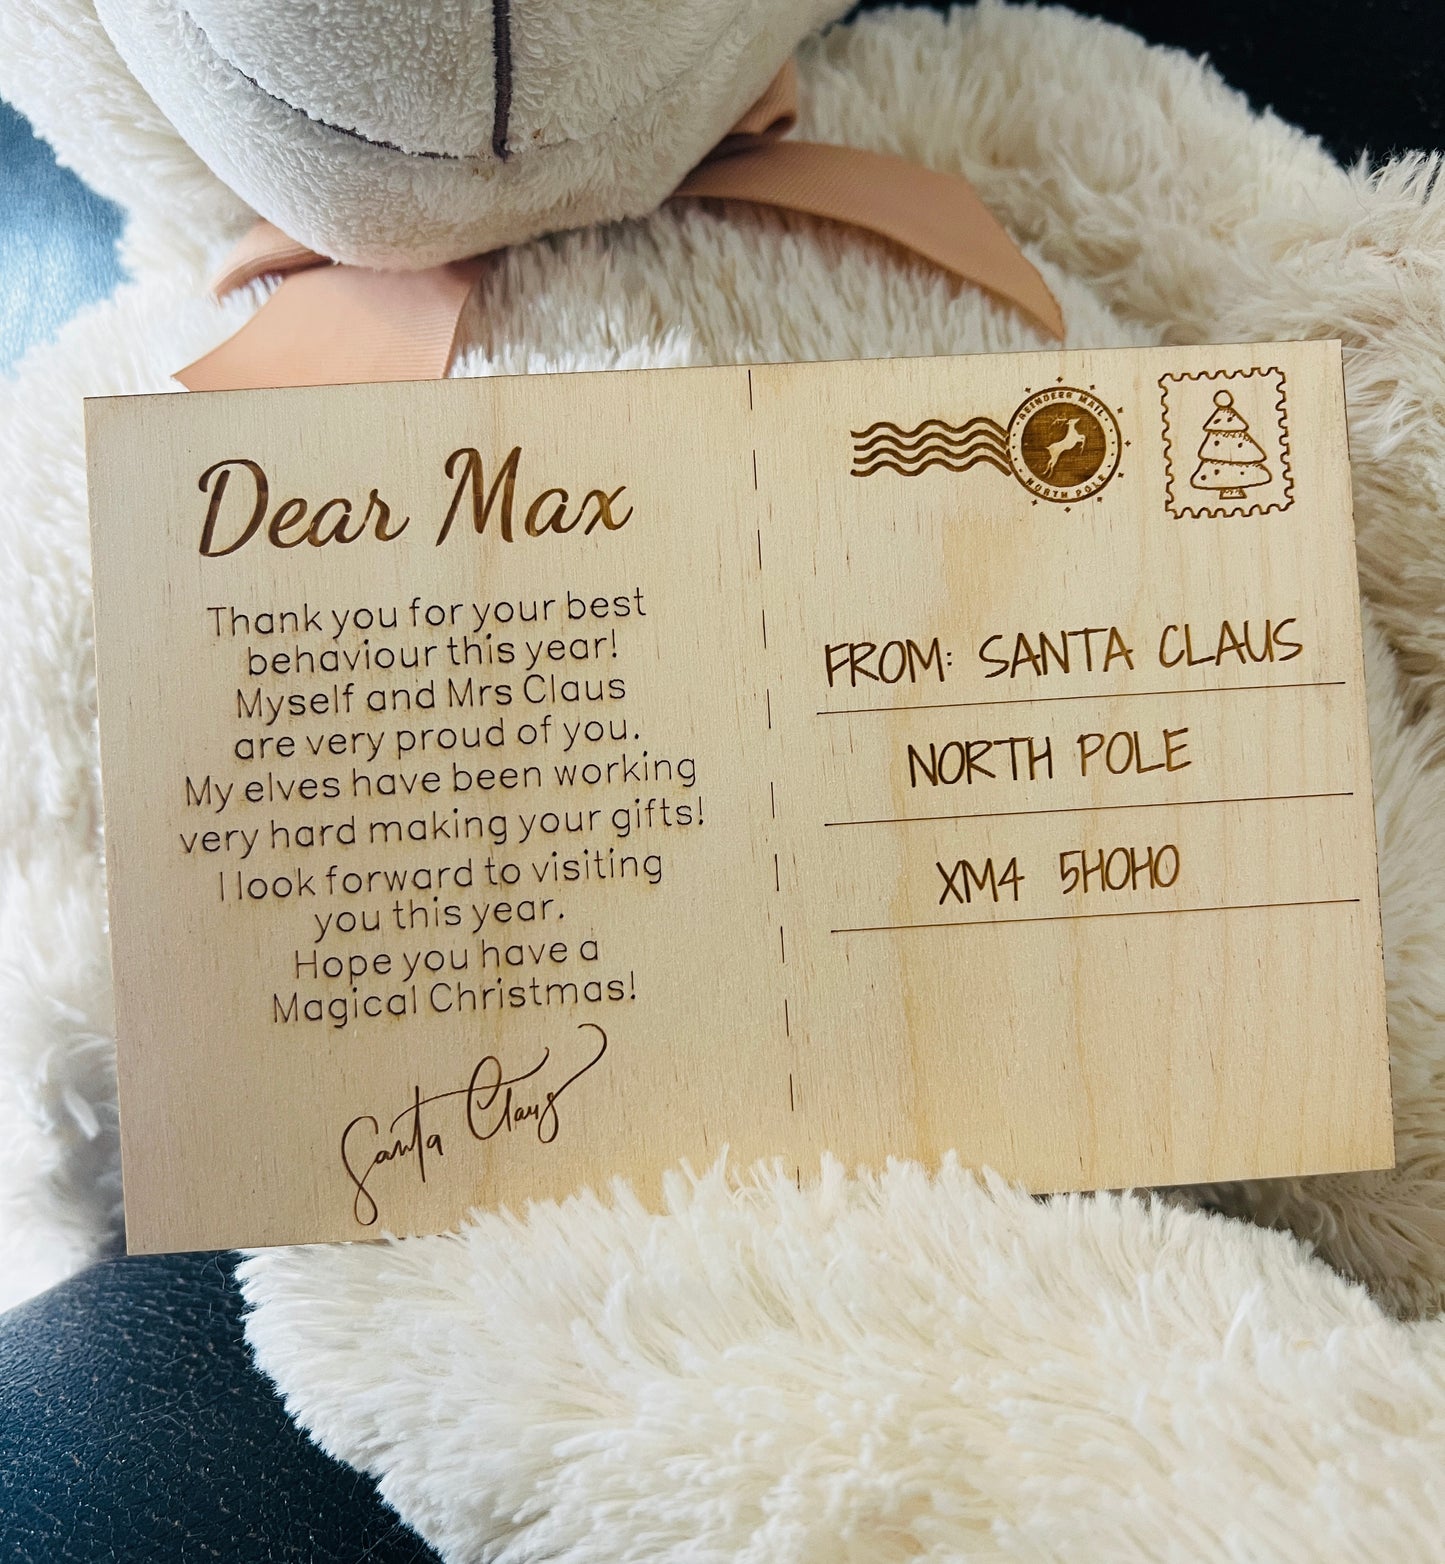 Dear Max
Thank you for your best
behaviour this year!
Myself and Mrs Claus
are very proud of you.
My elves have been working
very hard making your gifts!
I look forward to visiting
you this year.
Hope you have a
Magical Christmas!
Santa Claus
REINDEER MAIL
NORTH POLE
FROM: SANTA CLAUS
NORTH POLE
XM4 5HOHO